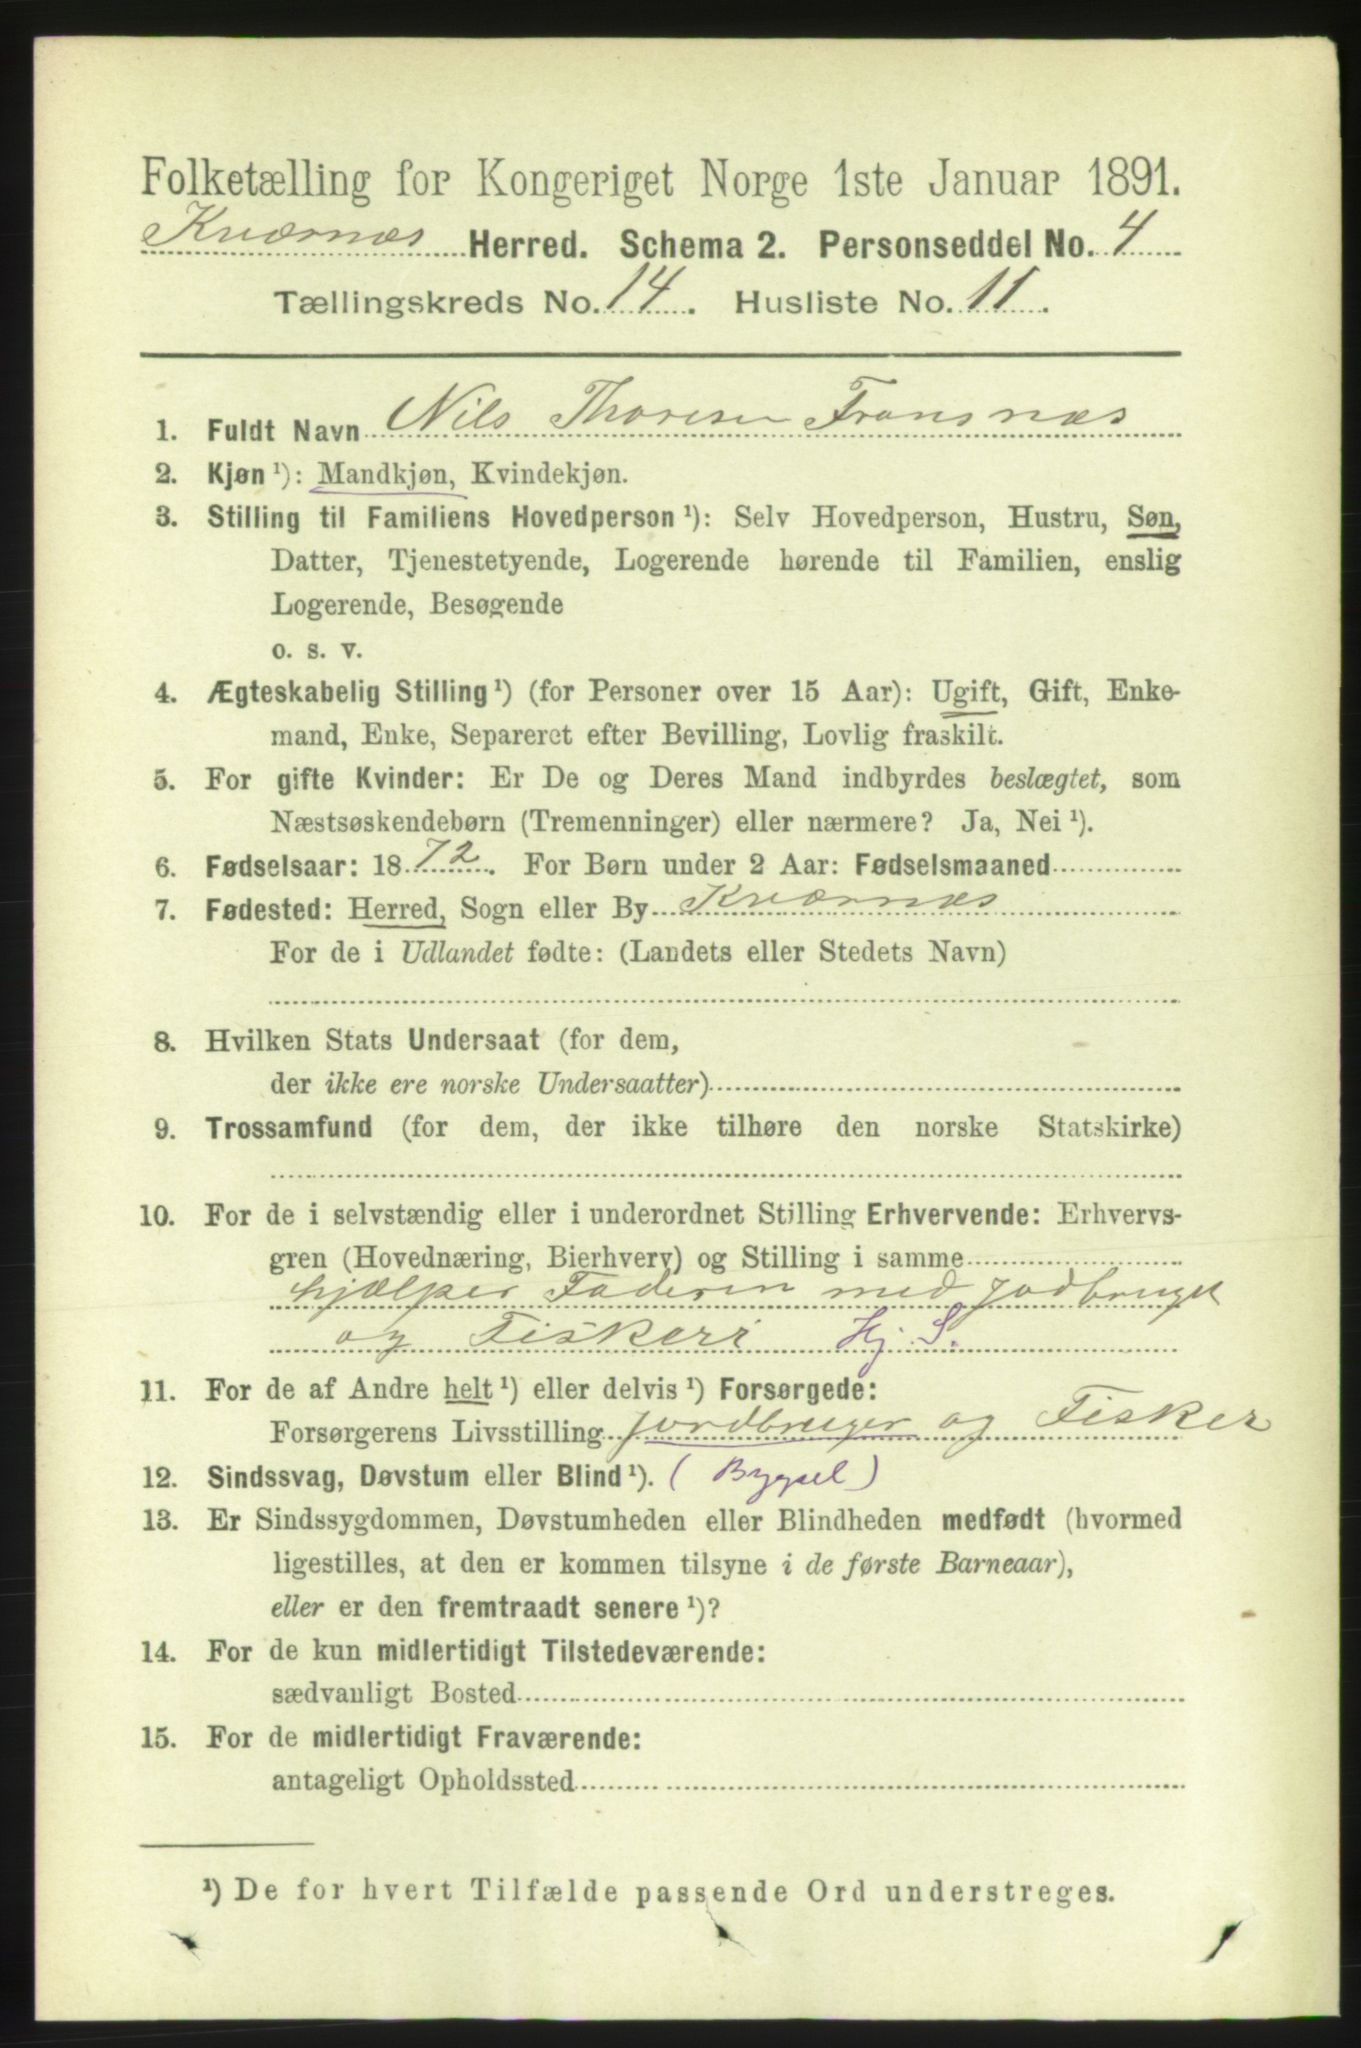 Folketælling for Kongeriget Norge 1ste Januar 1891.
Kværnæs Herred. Schema 2. Personseddel No. 4
Tællingskreds No. 14. Husliste No. 11.
1. Fuldt Navn Nils Thoresen Fransnæs
2. Kjøn ¹): Mandkjøn, Kvindekjøn.
3. Stilling til Familiens Hovedperson ¹): Selv Hovedperson, Hustru, Søn,
Datter, Tjenestetyende, Logerende hørende til Familien, enslig
Logerende, Besøgende
o. s. v.
4. Ægteskabelig Stilling ¹) (for Personer over 15 Aar): Ugift, Gift, Enke-
mand, Enke, Separeret efter Bevilling, Lovlig fraskilt.
5. For gifte Kvinder: Er De og Deres Mand indbyrdes beslægtet, som
Næstsøskendebørn (Tremenninger) eller nærmere? Ja, Nei ¹).
6. Fødselsaar: 1872. For Børn under 2 Aar: Fødselsmaaned
7. Fødested: Herred, Sogn eller By Kværnæs
For de i Udlandet fødte: (Landets eller Stedets Navn)
8. Hvilken Stats Undersaat (for dem,
der ikke ere norske Undersaatter)
9. Trossamfund (for dem, der ikke tilhøre den norske Statskirke)
10. For de i selvstændig eller i underordnet Stilling Erhvervende: Erhvervs-
gren (Hovednæring, Bierhverv) og Stilling i samme
hjælper Faderen med Jodbruget
og Fiskeri Hj. S.
11. For de af Andre helt ¹) eller delvis ¹) Forsørgede:
Forsørgerens Livsstilling Jordbruger og Fisker
12. Sindssvag, Døvstum eller Blind ¹). (Bygsel)
13. Er Sindssygdommen, Døvstumheden eller Blindheden medfødt (hvormed
ligestilles, at den er kommen tilsyne i de første Barneaar),
eller er den fremtraadt senere ¹)?
14. For de kun midlertidigt Tilstedeværende:
sædvanligt Bosted
15. For de midlertidigt Fraværende:
antageligt Opholdssted
¹) De for hvert Tilfælde passende Ord understreges.